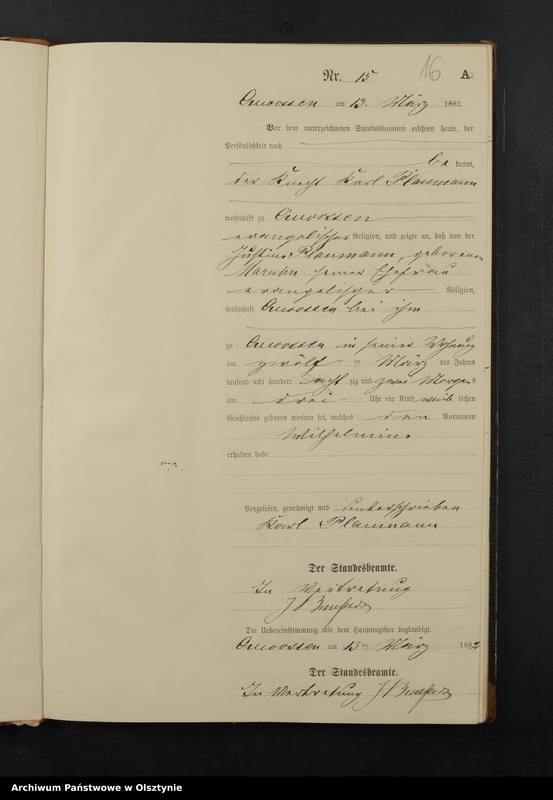 Nr. 15 16 A.
am 13. März 1882.
Vor dem unterzeichneten Standesbeamten erschien heute, der
Persönlichkeit nach
be kannt,
der Knecht Karl Plaumann
wohnhaft zu
evangelischer Religion, und zeigte an, daß von der
Justine Plaumann, geborenen
seiner Ehefrau
evangelischer Religion,
wohnhaft bei ihm
zu in seiner Wohnung
am zwölften März des Jahres
tausend acht hundert acht zig und zwei Morgens
um drei Uhr ein Kind weib lichen
Geschlechts geboren worden sei, welches den Vornamen
Wilhelmine
erhalten habe
Vorgelesen, genehmigt und unterschrieben
Karl Plaumann
Der Standesbeamte.
In Vertretung
Die Uebereinstimmung mit dem Hauptregister beglaubigt.
am 13ten März 1882
Der Standesbeamte.
In Vertretung
Archiwum Państwowe w Olsztynie